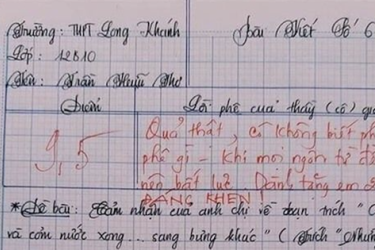 Trường: THPT Long Khánh Bài Viết Số 6
Lớp: 12B10
Tên: Trần Huỳnh Như
Điểm Lời phê của thầy (cô) gi
9,5
Quả thật, cô không biết ph
phê gì - khi mọi ngôn từ đề
nên bất lực. Dành tặng em
ĐÁNG KHEN!
*Đề bài: Cảm nhận của anh chị về đoạn trích "
và cơm nước xong... sang bưng khác" ( trích "Nhữn